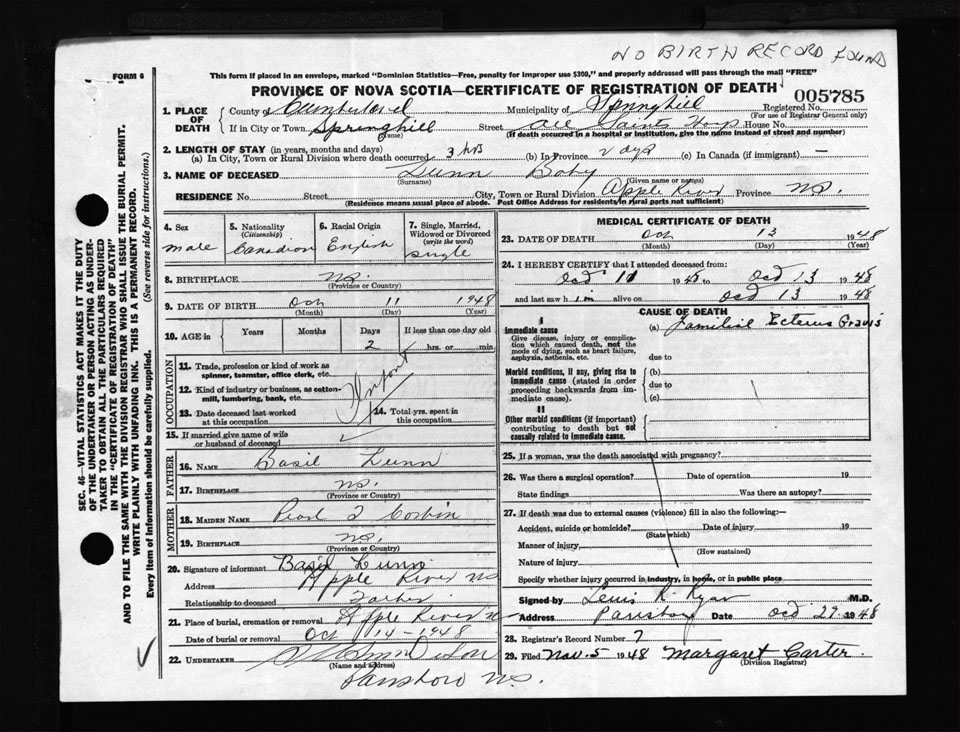 NO BIRTH RECORD FOUND
FORM 6
This form if placed in an envelope, marked "Dominion Statistics—Free, penalty for improper use $300," and properly addressed will pass through the mail "FREE"
PROVINCE OF NOVA SCOTIA—CERTIFICATE OF REGISTRATION OF DEATH
005785
1. PLACE OF DEATH
County of Cumberland Municipality of Springhill Registered No.
(For use of Registrar General only)
If in City or Town Springhill Street All Saints Hosp House No.
(Name) (If death occurred in a hospital or institution, give the name instead of street and number)
2. LENGTH OF STAY (in years, months and days)
(a) In City, Town or Rural Division where death occurred 3 hrs (b) In Province 2 days (c) In Canada (if immigrant) —
3. NAME OF DECEASED Lunn Baby
(Surname) (Given name or names)
RESIDENCE No. Street City, Town or Rural Division Apple River Province N.S.
(Residence means usual place of abode. Post Office Address for residents in rural parts not sufficient)
4. Sex male
5. Nationality (Citizenship) Canadian
6. Racial Origin English
7. Single, Married, Widowed or Divorced (write the word) single
8. BIRTHPLACE N.S.
(Province or Country)
9. DATE OF BIRTH Oct 11 1948
(Month) (Day) (Year)
10. AGE in Years Months Days 2 If less than one day old hrs. or min.
OCCUPATION
11. Trade, profession or kind of work as spinner, teamster, office clerk, etc.
12. Kind of industry or business, as cotton-mill, lumbering, bank, etc.
Infant
13. Date deceased last worked at this occupation
14. Total yrs. spent in this occupation
15. If married give name of wife or husband of deceased
FATHER
16. NAME Basil Lunn
17. BIRTHPLACE N.S.
(Province or Country)
MOTHER
18. MAIDEN NAME Pearl I Corbin
19. BIRTHPLACE N.S.
(Province or Country)
20. Signature of informant Basil Lunn
Address Apple River NS
Relationship to deceased Father
21. Place of burial, cremation or removal Apple River N
Date of burial or removal Oct 14 - 1948
22. UNDERTAKER
(Name and address)
Parrsboro N.S.
MEDICAL CERTIFICATE OF DEATH
23. DATE OF DEATH Oct 13 1948
(Month) (Day) (Year)
24. I HEREBY CERTIFY that I attended deceased from:
Oct 11 1948 to Oct 13 1948
and last saw h im alive on Oct 13 1948
CAUSE OF DEATH
I
Immediate cause
Give disease, injury or complication which caused death, not the mode of dying, such as heart failure, asphyxia, asthenia, etc.
(a) Familial Icterus Gravis
due to
Morbid conditions, if any, giving rise to immediate cause (stated in order proceeding backwards from immediate cause).
(b)
due to
(c)
II
Other morbid conditions (if important) contributing to death but not causally related to immediate cause.
25. If a woman, was the death associated with pregnancy?
26. Was there a surgical operation? Date of operation 19
State findings Was there an autopsy?
27. If death was due to external causes (violence) fill in also the following:—
Accident, suicide or homicide? Date of injury 19
(State which)
Manner of injury
(How sustained)
Nature of injury
Specify whether injury occurred in industry, in home, or in public place
Signed by Lewis R. Ryan M.D.
Address Parrsboro Date Oct 29 1948
28. Registrar's Record Number 7
29. Filed Nov. 5 1948 Margaret Carter.
(Division Registrar)
SEC. 46—VITAL STATISTICS ACT MAKES IT THE DUTY
OF THE UNDERTAKER OR PERSON ACTING AS UNDER-
TAKER TO OBTAIN ALL THE PARTICULARS REQUIRED
IN THE "CERTIFICATE OF REGISTRATION OF DEATH"
AND TO FILE THE SAME WITH THE DIVISION REGISTRAR WHO SHALL ISSUE THE BURIAL PERMIT.
WRITE PLAINLY WITH UNFADING INK. THIS IS A PERMANENT RECORD.
Every item of information should be carefully supplied. (See reverse side for instructions.)